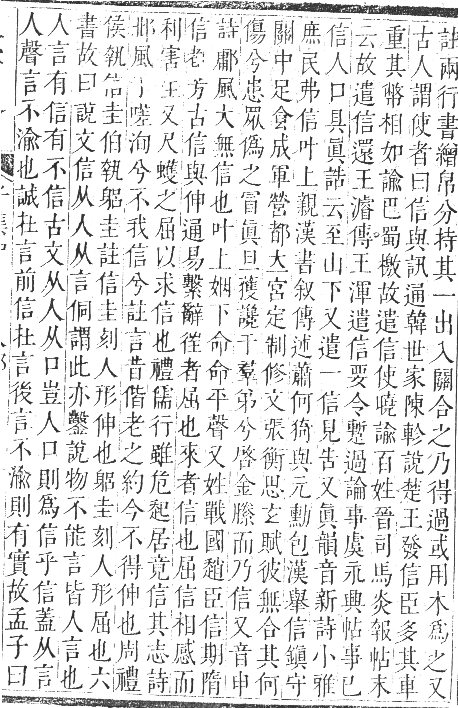 註兩行書繒帛分持其一出入關合之乃得過或用木爲之又
古人謂使者曰信與訊通韓世家陳軫說楚王發信臣多其車
重其幣相如諭巴蜀檄故遣信使曉諭百姓晉司馬炎報帖末
云故遣信還王濬傳王渾遣信要令暫過論事虞永興帖事已
信人口具眞誥云至山下又遣一信見告又眞韻音新詩小雅
庶民弗信叶上親漢書叙傳述蕭何猗與元勳包漢舉信鎭守
關中足食成軍營都大宮定制修文張衡思玄賦彼無合其何
傷兮患眾僞之冒眞旦獲讒于羣弟兮啓金縢而乃信又音申
詩鄘風大無信也叶上姻下命命平聲又姓戰國趙臣信期隋
信老芳古信與伸通易繫辭往者屈也來者信也屈信相感而
利害生又尺蠖之屈以求信也禮儒行雖危起居竟信其志詩
邶風于嗟洵兮不我信兮註言昔偕老之約今不得伸也周禮
侯執信圭伯執躬圭註信圭刻人形伸也躬圭刻人形屈也六
書故曰說文信从人从言侗謂此亦鑿說物不能言皆人言也
人言有信有不信古文从人从口豈人口則爲信乎信蓋从言
人聲言不渝也誠在言前信在言後言不渝則有實故孟子曰